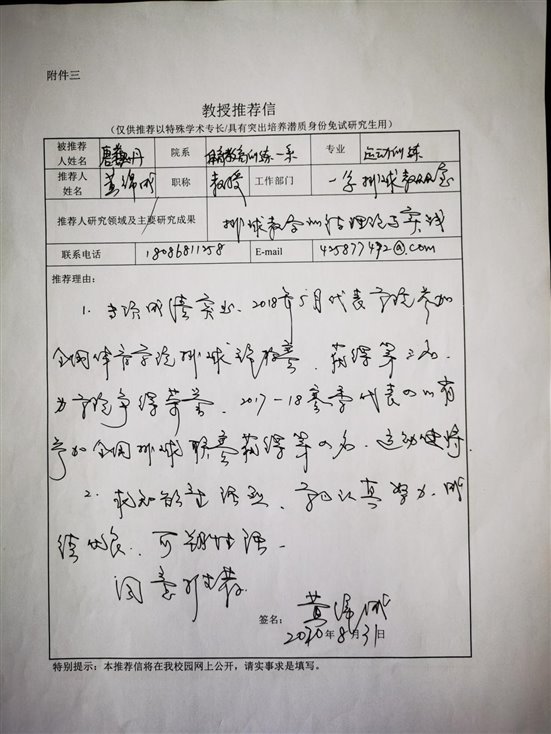 附件三
教授推荐信
（仅供推荐以特殊学术专长/具有突出培养潜质身份免试研究生用）
被推荐人姓名 唐 丹 院系 体育教育训练一系 专业 运动训练
推荐人姓名 黄 职称 教授 工作部门 一系排球教研室
推荐人研究领域及主要研究成果 排球教学训练理论与实践
联系电话 18086811258 E-mail 425877492@.com
推荐理由：
1. 专项成绩突出. 2018年5月代表学院参加
全国体育学院排球锦标赛、获得第三名.
为学院争得荣誉、2017-18赛季代表四川省
参加全国排球联赛获得第四名. 运动健将.
2. 求知欲望强烈、学习认真努力. 成
绩优良. 可塑性强.
同意推荐.
签名： 黄
2020年8月31日
特别提示：本推荐信将在我校园网上公开，请实事求是填写。